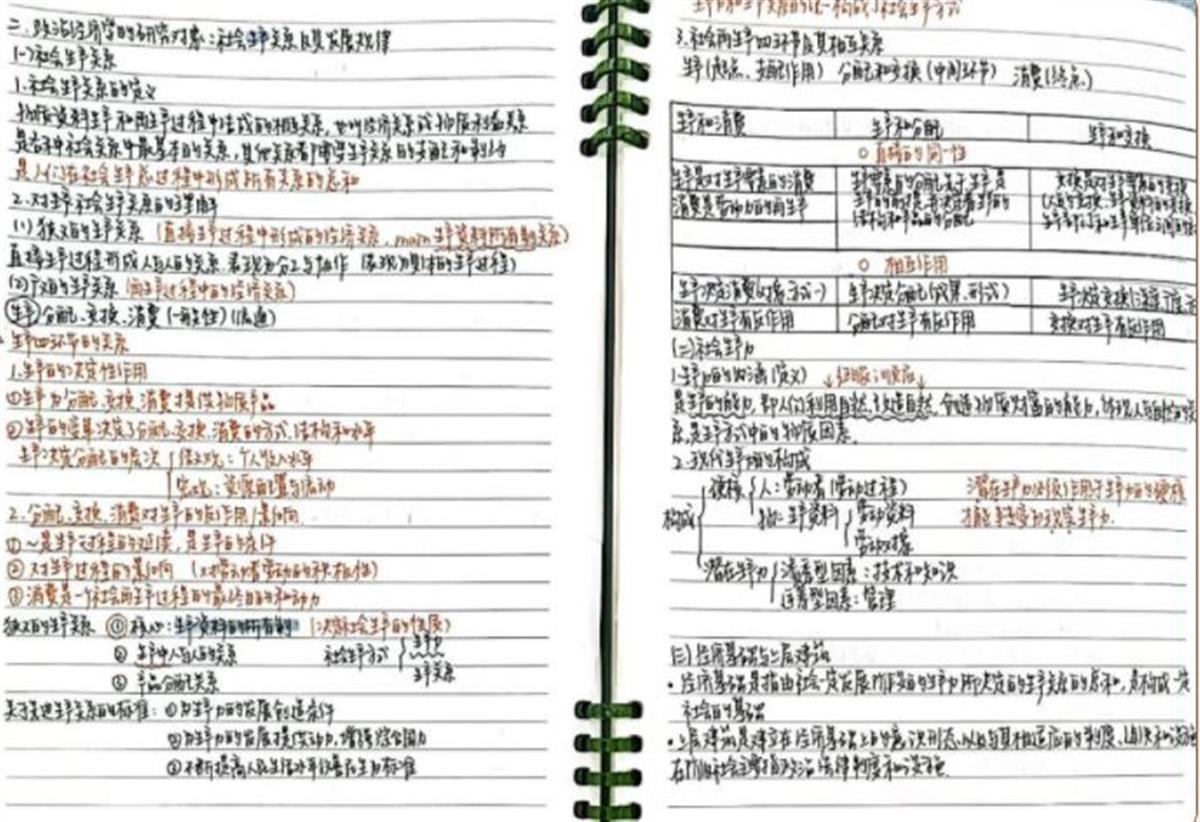 二、政治经济学的研究对象：社会生产关系及其发展规律
(一)社会生产关系
1.社会生产关系的定义
物质资料生产和再生产过程中结成的相互关系，也叫经济关系或物质利益关系
是各种社会关系中最基本的关系，其他关系都需受生产关系的支配和制约
是人们在社会生产总过程中形成所有关系的总和
2.对生产社会生产关系的理解
(1)狭义的生产关系（直接生产过程中形成的经济关系，main生产资料所有制关系）
直接生产过程形成人与人的关系 表现为分工与协作（体现为具体的生产过程）
(2)广义的生产关系（再生产过程中的经济关系）
生产 分配、交换、消费（一般性）（流通）
生产四环节的关系
1.生产的决定性作用
①生产为分配、交换、消费提供物质产品
②生产的变革决定了分配、交换、消费的方式、结构和水平
生产决定分配的层次 微观：个人收入水平
宏观：资源配置与流动
2.分配、交换、消费对生产的反作用/影响
①~是生产过程的延续，是生产的条件
②对生产过程的影响（对劳动者劳动的积极性）
③消费是一个社会再生产过程的最终目的和动力
狭义的生产关系 ①核心：生产资料的所有制（决定社会生产的性质）
②生产中人与人的关系 社会生产方式 生产力
③产品分配关系 生产关系
关于先进生产关系的标准：①为生产力的发展创造条件
②为生产力的发展提供动力，增强综合国力
③不断提高人民生活水平
3.社会再生产四环节及其相互关系
生产(起点、支配作用) 分配和交换(中间环节) 消费(终点)
生产和消费 生产和分配 生产和交换
○直接的同一性
生产是对生产要素的消费 生产要素的分配先于生产是 交换是对生产要素的交换
消费是劳动力的再生产
○相互作用
生产决定消费(对象、方式~) 生产决定分配(成果、形式) 生产决定交换
消费对生产有反作用 分配对生产有反作用 交换对生产有反作用
(二)社会生产力
1.生产力的内涵(定义)
是生产的能力，即人们利用自然、改造自然、创造物质财富的能力，体现人与自然的关
系，是生产方式中的物质因素。
2.现代生产力的构成
构成 硬核 人：劳动者(劳动过程) 潜在生产力必须作用于生产力的硬核
物：生产资料 劳动资料 才能转变为现实生产力
劳动对象
潜在生产力 渗透型因素：技术和知识
运筹型因素：管理
(三)经济基础与上层建筑
·经济基础是指由社会一定发展阶段的生产力所决定的生产关系的总和，是构成一定
社会的基础
·上层建筑是建立在经济基础上的意识形态以及与其相适应的制度、组织和设施
在阶级社会主要指政治法律制度和设施.